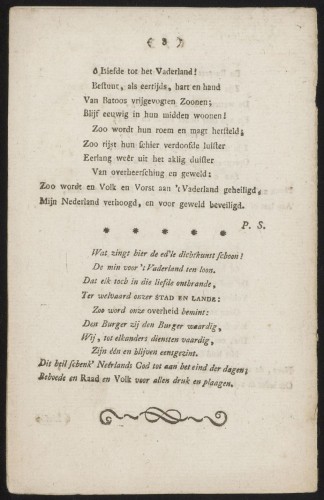 ( 8 )
ô Liefde tot het Vaderland!
Bestuur, als eertijds, hart en hand
Van Batoos vrijgevogten Zoonen;
Blijf eeuwig in hun midden woonen!
Zoo wordt hun roem en magt hersteld;
Zoo rijst hun schier verdoofde luister
Eerlang weêr uit het aklig duister
Van overheersching en geweld:
Zoo worde en Volk en Vorst aan 't Vaderland geheiligd,
Mijn Nederland verhoogd, en voor geweld beveiligd.
P. S.
* * * * *
Wat zingt hier de ed'le dichtkunst schoon!
De min voor 't Vaderland ten loon.
Dat elk toch in die liefde ontbrande,
Ter welvaard onzer STAD EN LANDE:
Zoo word onze overheid bemint:
Den Burger zij den Burger waardig,
Wij, tot elkanders diensten vaardig,
Zijn één en blijven eensgezint.
Dit heil schenk' Neêrlands God tot aan het eind der dagen;
Behoede en Raad en Volk voor allen druk en plaagen.